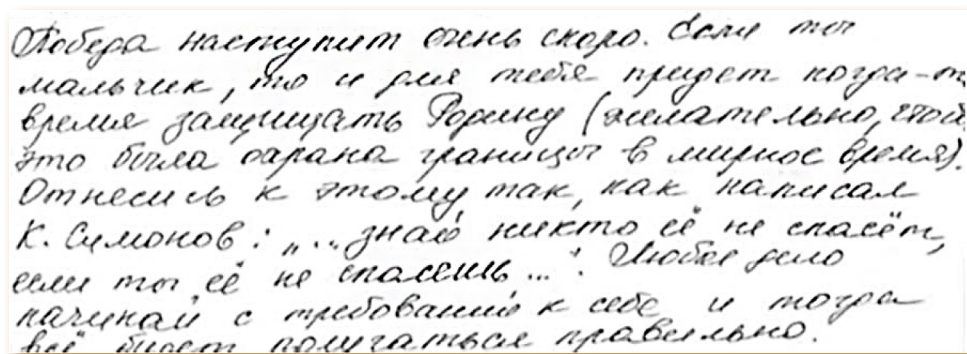 Победа наступит очень скоро. Если ты
мальчик, то и для тебя придет когда-т
время защищать Родину (желательно, чтоб
это была охрана границы в мирное время).
Отнесись к этому так, как написал
К. Симонов: „...знай никто её не спасёт,
если ты её не спасешь...". Любое дело
начинай с требований к себе и тогда
всё будет получаться правильно.